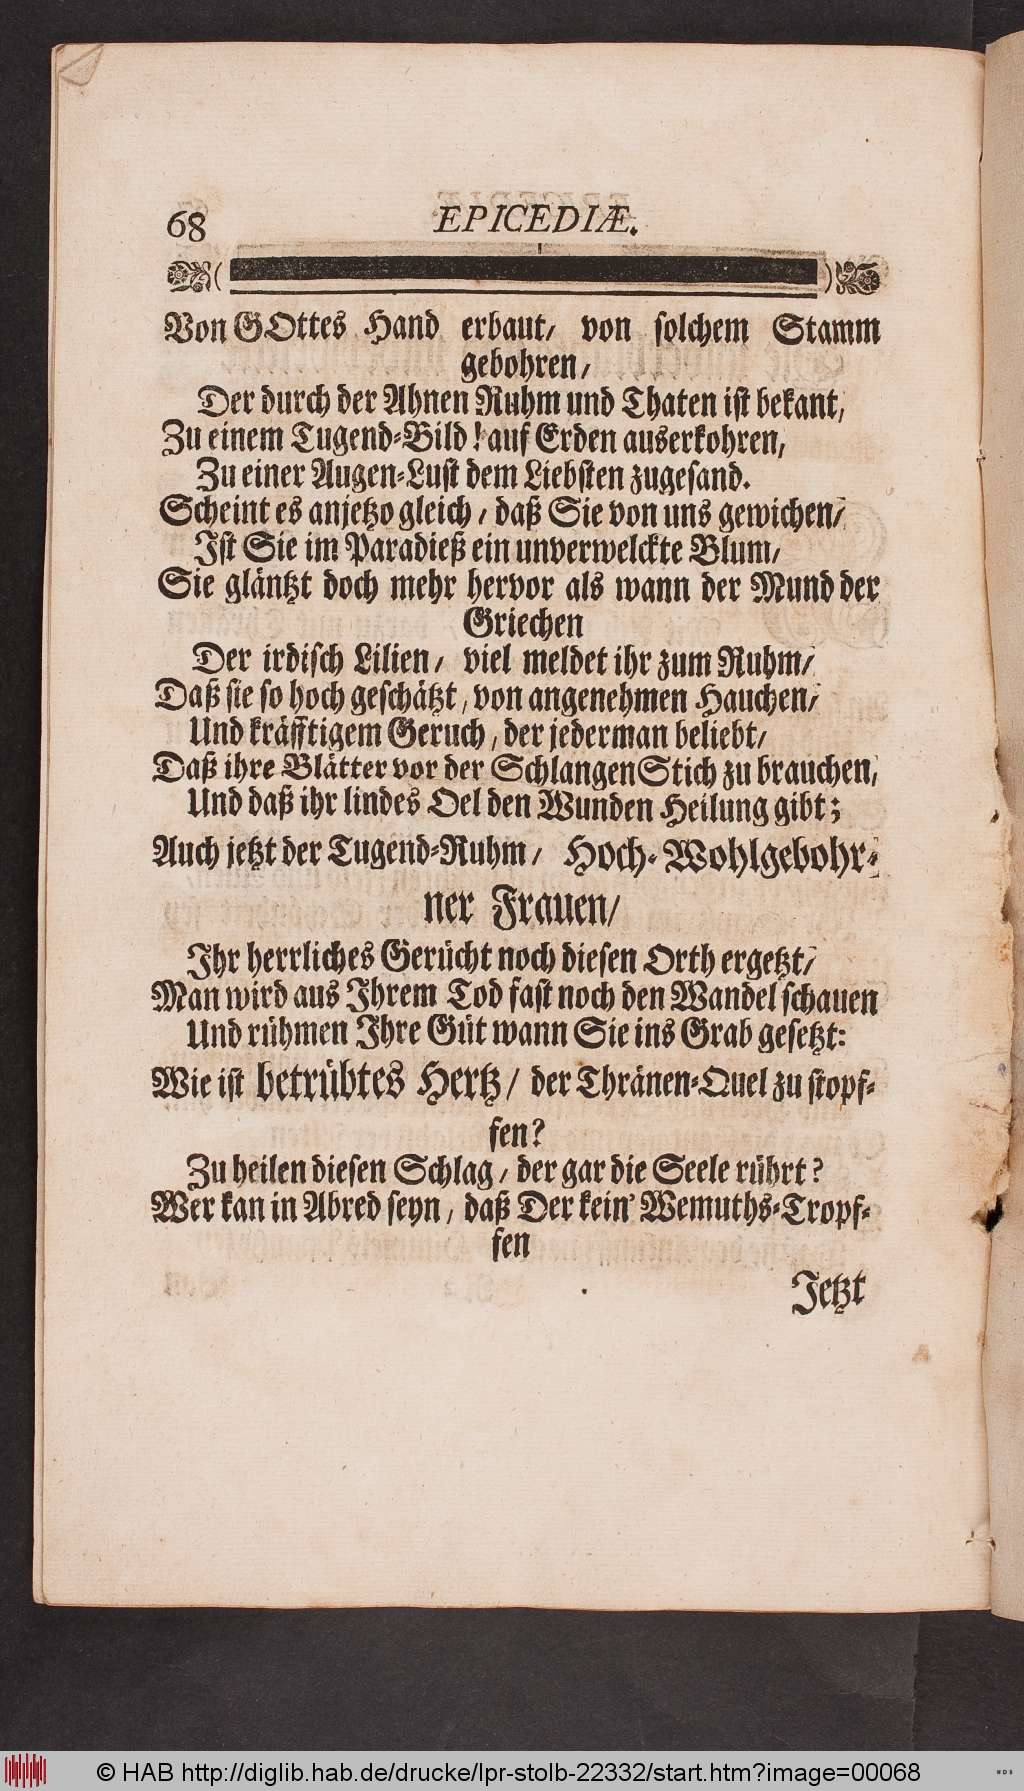 68 EPICEDIÆ.
Von GOttes Hand erbaut/ von solchem Stamm
gebohren/
Der durch der Ahnen Ruhm und Thaten ist bekant,
Zu einem Tugend-Bild! auf Erden auserkohren,
Zu einer Augen-Lust dem Liebsten zugesand.
Scheint es anjetzo gleich, daß Sie von uns gewichen/
Ist Sie im Paradieß ein unverwelckte Blum/
Sie gläntzt doch mehr hervor als wann der Mund der
Griechen
Der irdisch Lilien, viel meldet ihr zum Ruhm/
Daß sie so hoch geschätzt, von angenehmen Hauchen/
Und kräfftigem Geruch, der jederman beliebt/
Daß ihre Blätter vor der Schlangen Stich zu brauchen,
Und daß ihr lindes Oel den Wunden Heilung gibt;
Auch jetzt der Tugend-Ruhm, Hoch-Wohlgebohr-
ner Frauen/
Ihr herrliches Gerücht noch diesen Orth ergetzt/
Man wird aus Ihrem Tod fast noch den Wandel schauen
Und rühmen Ihre Güt wann Sie ins Grab gesetzt:
Wie ist betrübtes Hertz/ der Thränen-Quel zu stopf-
fen?
Zu heilen diesen Schlag, der gar die Seele rührt?
Wer kan in Abred seyn, daß Der kein' Wemuths-Tropf-
fen
Jetzt
© HAB http://diglib.hab.de/drucke/lpr-stolb-22332/start.htm?image=00068